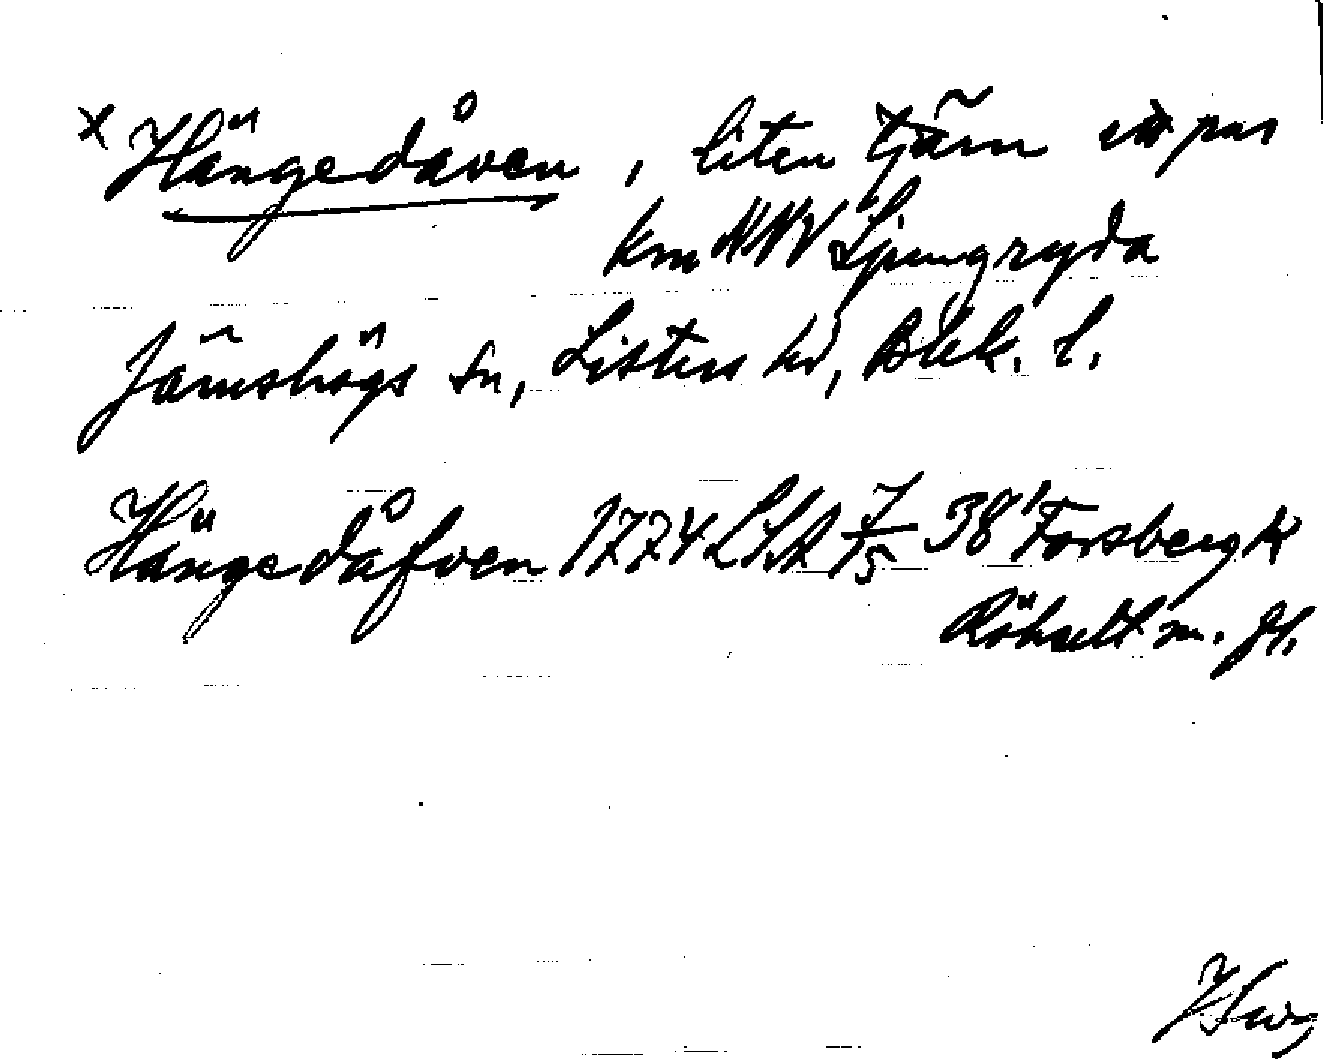 x Hängedåven, liten tjärn ett par
km NNV Ljungryda
Jämshögs sn, Listers hd, Blek. l.
Hängedåfven 1774 LSA 7/15 38' Forsberg K
Röhult m. fl.